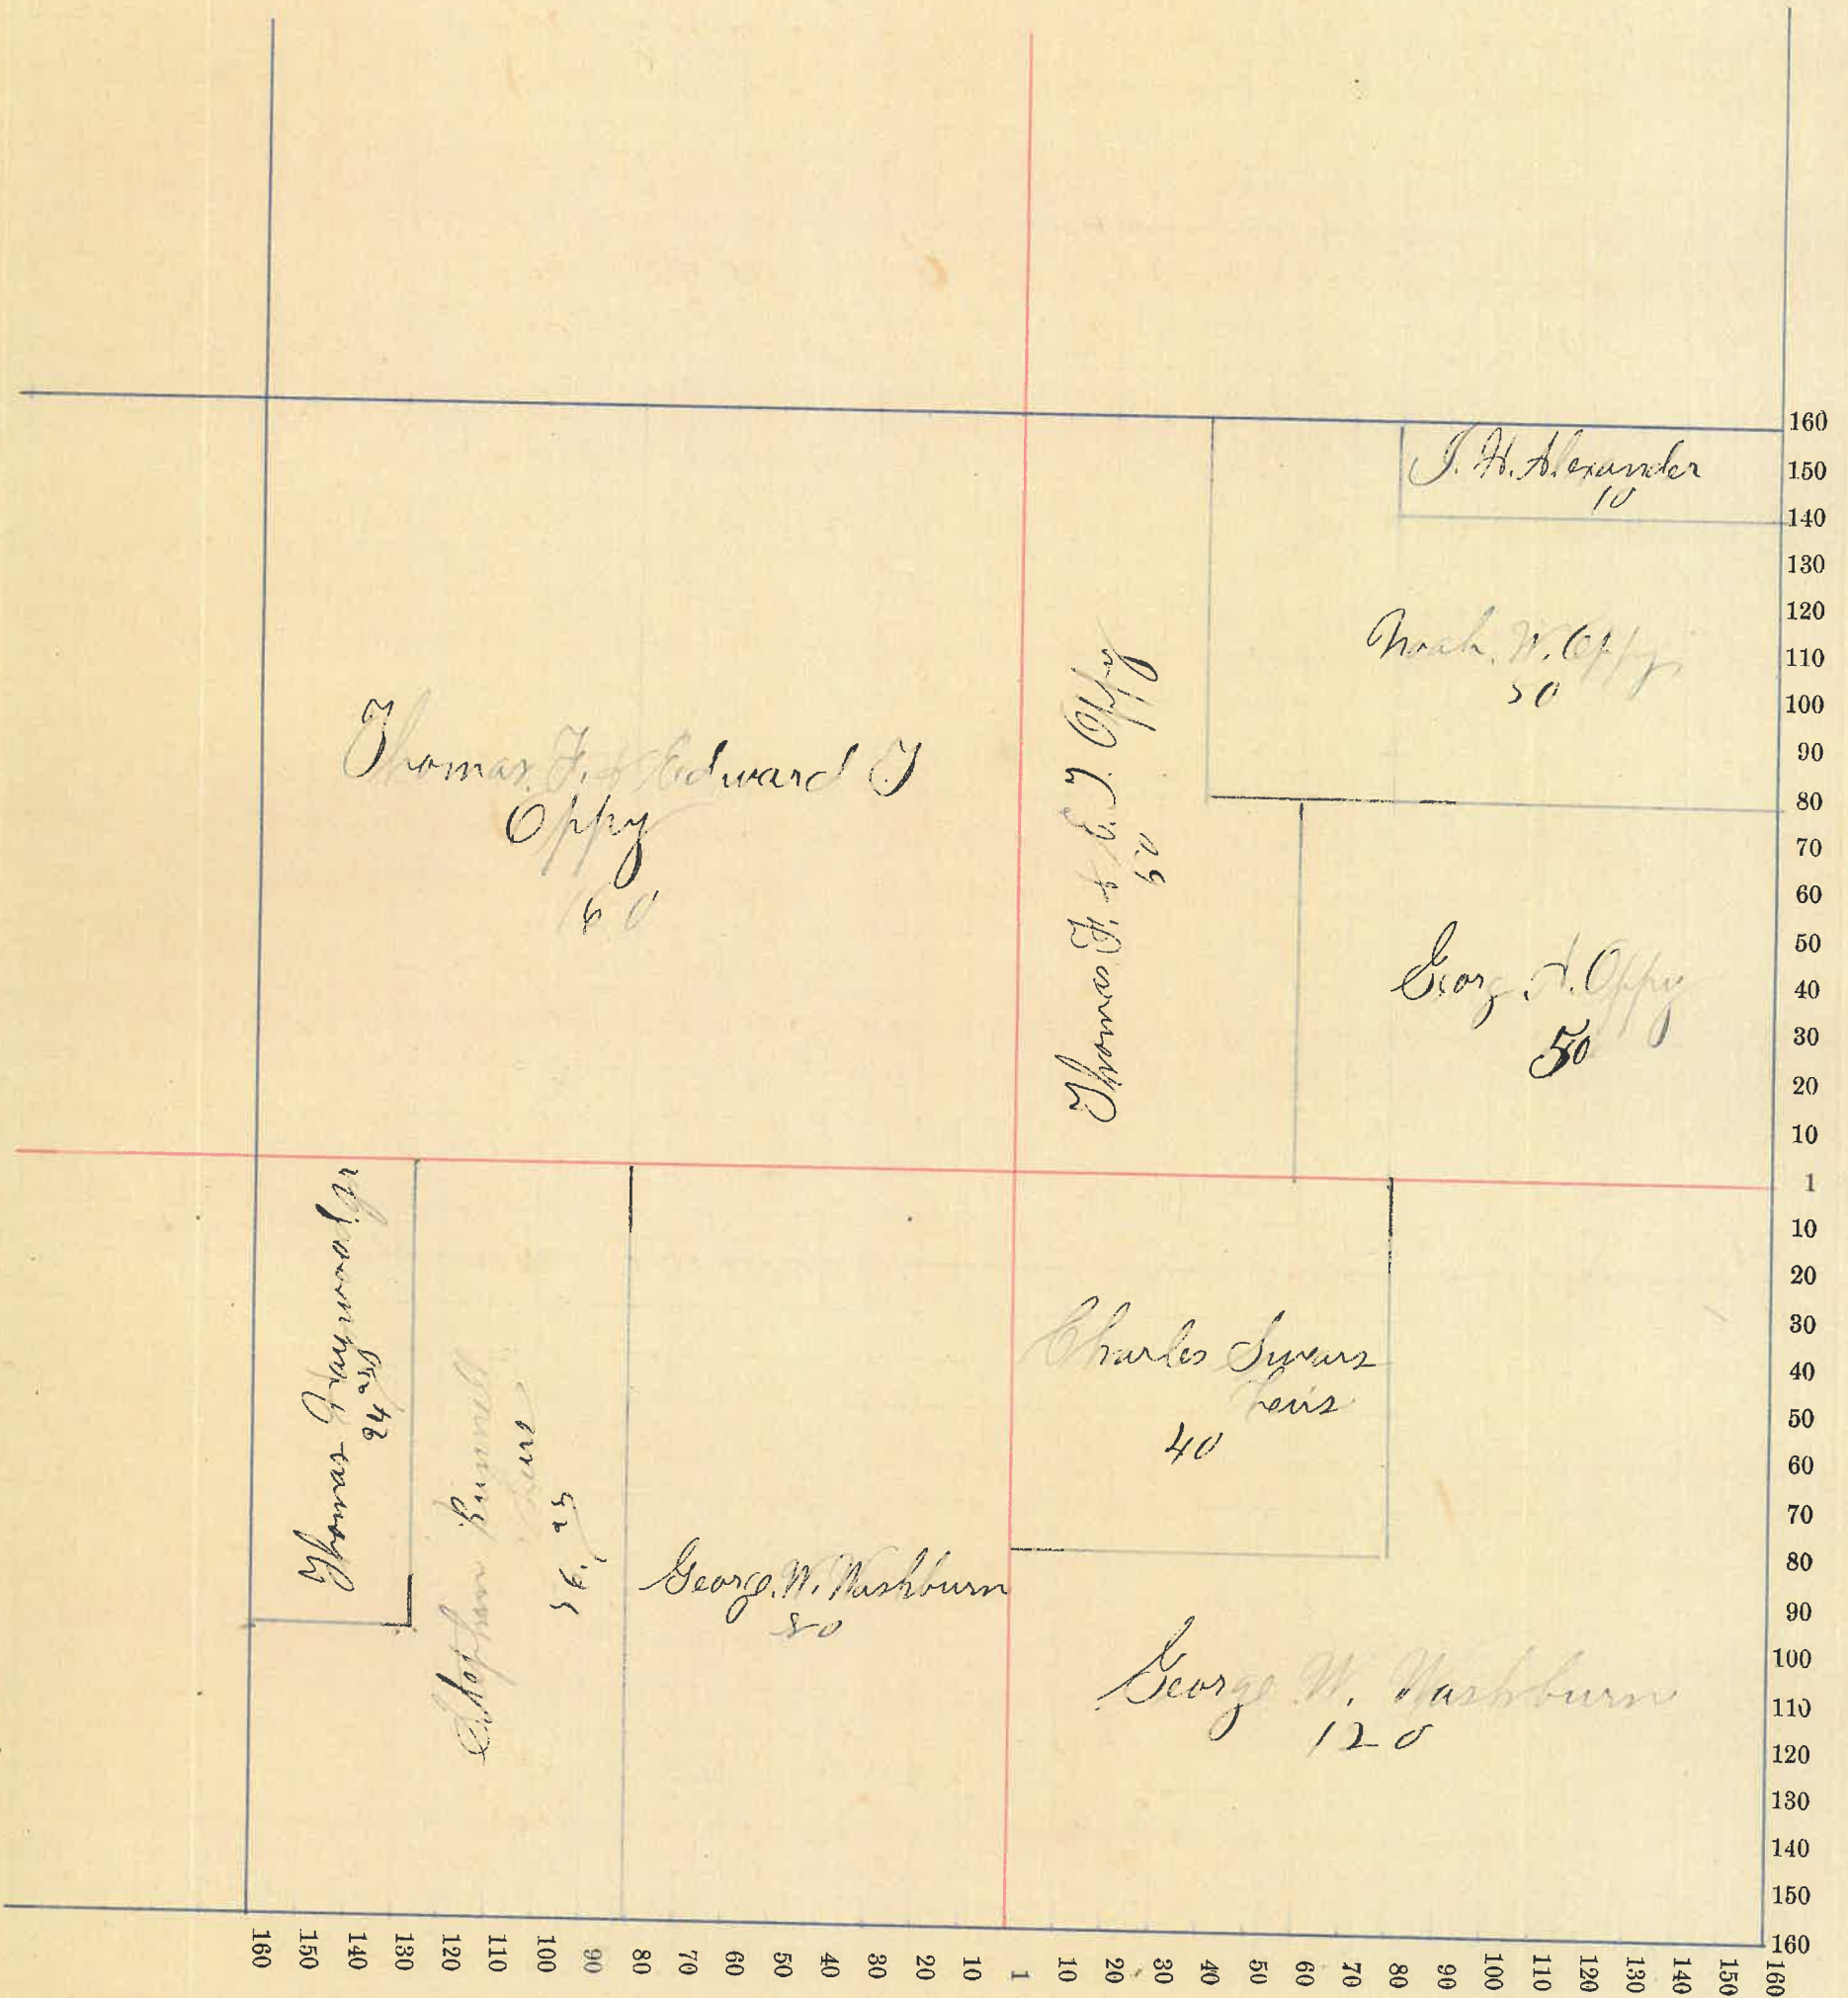 J. H. Alexander
10
Noah. W. Oppy
50
Thomas. F. & Edward J
Oppy
160
Thomas F. & E. J Oppy
50
Georg. A. Oppy
50
Thomas Gaynwood jr
24
Stephen
heirs
George. W. Washburn
80
Charles Swarz
heirs
40
George W. Washburn
120
160
150
140
130
120
110
100
90
80
70
60
50
40
30
20
10
1
10
20
30
40
50
60
70
80
90
100
110
120
130
140
150
160
160 150 140 130 120 110 100 90 80 70 60 50 40 30 20 10 1 10 20 30 40 50 60 70 80 90 100 110 120 130 140 150 160